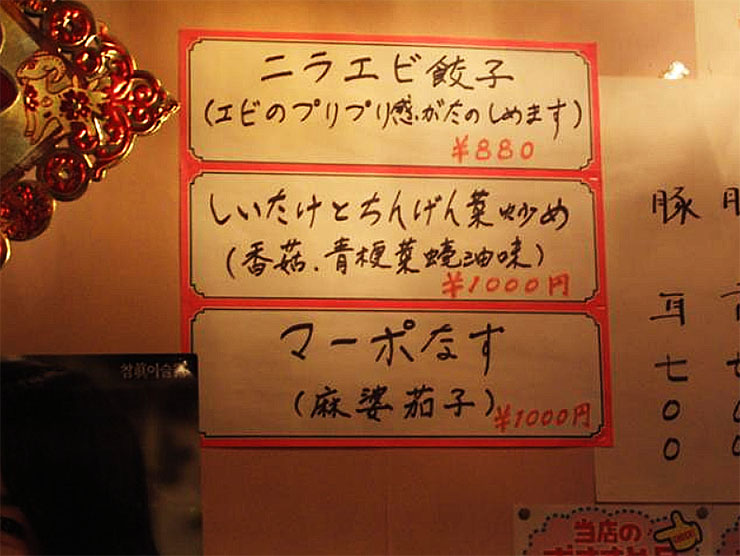 ニラエビ餃子
(エビのプリプリ感がたのしめます)
¥880
しいたけとちんげん菜炒め
(香菇.青梗菜蠔油味)
¥1000円
マーポなす
(麻婆茄子)
¥1000円
豚耳七〇〇
참眞이슬
当店の